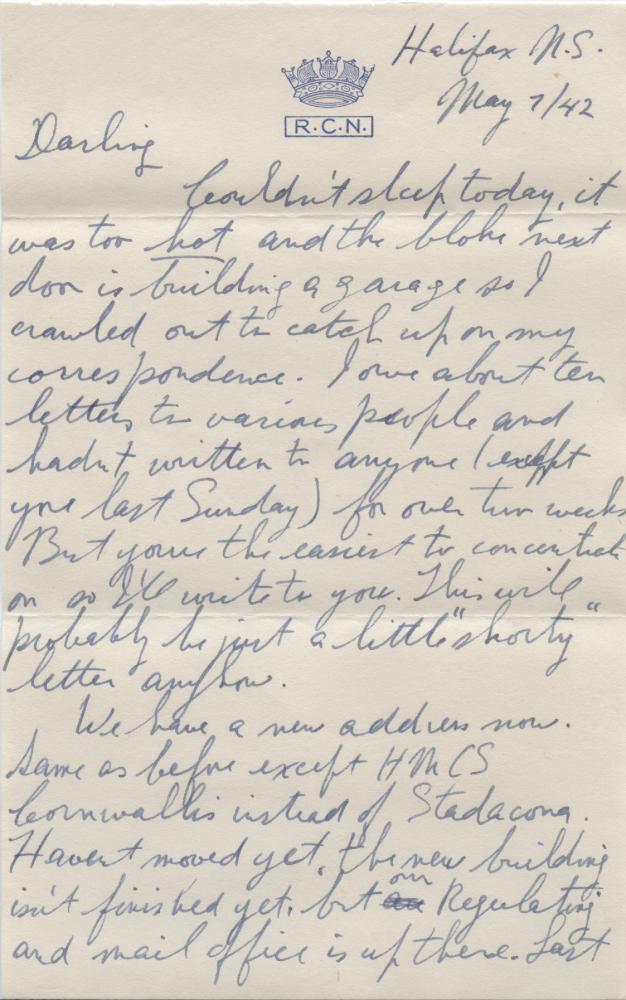 Halifax N.S.
R.C.N.
May 7/42
Darling
Couldn't sleep today, it
was too hot and the bloke next
door is building a garage so I
crawled out to catch up on my
correspondence. I owe about ten
letters to various people and
hadn't written to anyone (except
you last Sunday) for over two weeks
But you're the easiest to concentrate
on so I'll write to you. This will
probably be just a little "shorty"
letter anyhow.
We have a new address now.
Same as before except HMCS
Cornwallis instead of Stadacona.
Haven't moved yet, the new building
isn't finished yet, but our Regulating
and mail office is up there. Last